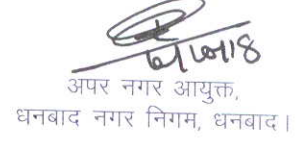 अपर नगर आयुक्त,
धनबाद नगर निगम, धनबाद।